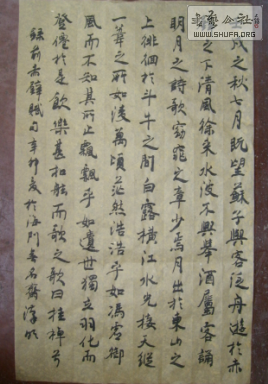 WWW.SHUFA.ORG
戌之秋七月既望蘇子與客泛舟遊於赤
壁之下清風徐來水波不興舉酒屬客誦
明月之詩歌窈窕之章少焉月出於東山之
上徘徊於斗牛之間白露橫江水光接天縱
一葦之所如凌萬頃茫然浩浩乎如馮虛御
風而不知其所止飄飄乎如遺世獨立羽化而
登僊於是飲樂甚扣舷而歌之歌曰桂棹兮
錄前赤壁賦句辛卯夏於海門